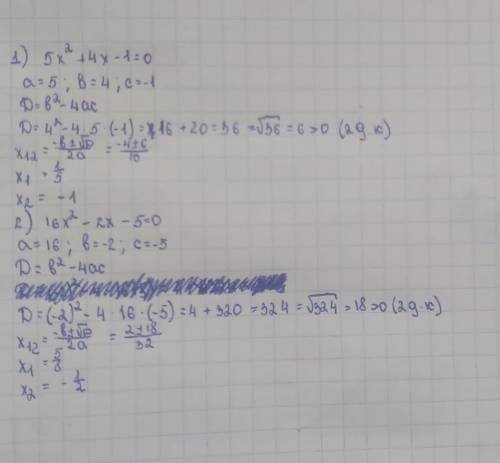 1) 5x² + 4x - 1 = 0
a = 5 ; b = 4 ; c = -1
D = b² - 4ac
D = 4² - 4 · 5 · (-1) = 16 + 20 = 36 = √36 = 6 > 0 (2 д.к)
x₁₂ = (-b ± √D)/2a = (-4 ± 6)/10
x₁ = 1/5
x₂ = -1
2) 16x² - 2x - 5 = 0
a = 16 ; b = -2 ; c = -5
D = b² - 4ac
D = (-2)² - 4 · 16 · (-5) = 4 + 320 = 324 = √324 = 18 > 0 (2 д.к)
x₁₂ = (-b ± √D)/2a = (2 ± 18)/32
x₁ = 5/8
x₂ = -1/2